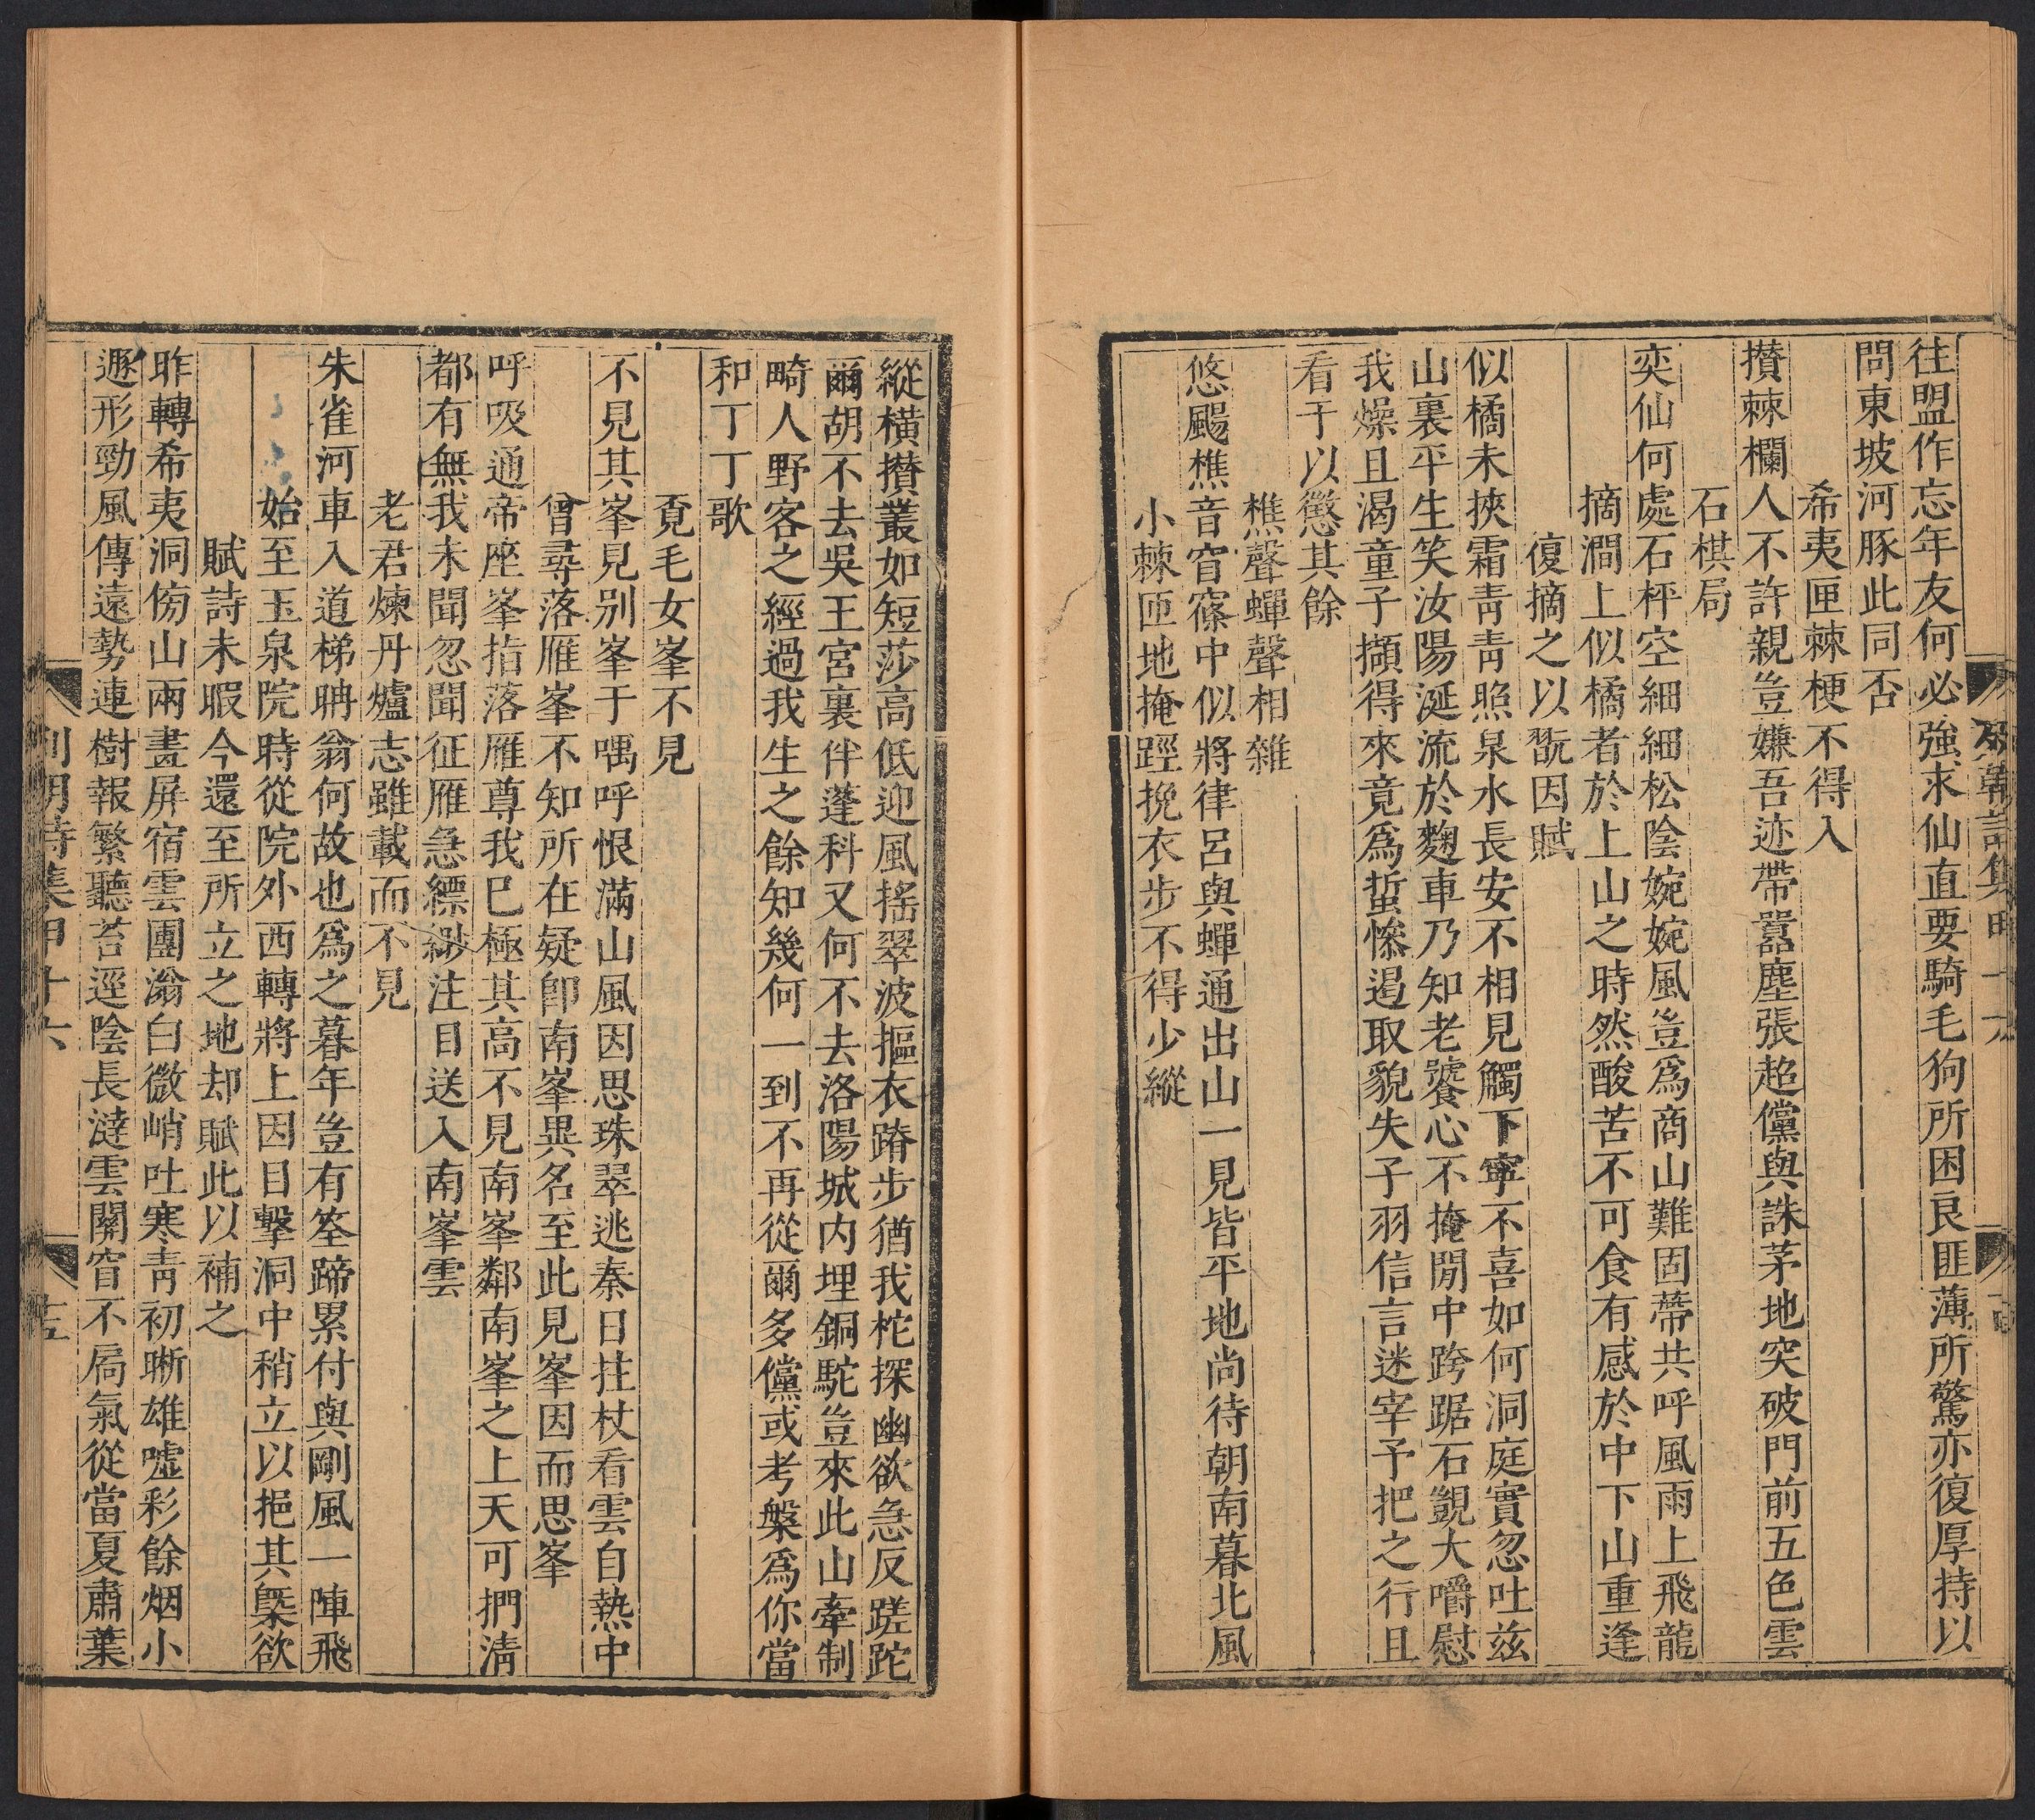 往盟作忘年友何必強求仙直要騎毛狗所困良匪薄所驚亦復厚持以
問東坡河豚此同否
希夷匣棘梗不得入
攢棘欄人不許親豈嫌吾迹帶囂塵張超儻與誅茅地突破門前五色雲
石棋局
奕仙何處石枰空細細松陰婉婉風豈爲商山難固蔕共呼風雨上飛龍
摘澗上似橘者於上山之時然酸苦不可食有感於中下山重逢
復摘之以翫因賦
似橘未挾霜青青照泉水長安不相見觸下寧不喜如何洞庭實忽吐兹
山裏平生笑汝陽涎流於麴車乃知老饕心不掩閒中跨踞石覬大嚼慰
我燥且渴童子擷得來竟爲蜇慘遏取貌失子羽信言迷宰予把之行且
看于以懲其餘
樵聲蟬聲相雜
悠颺樵音窅窱中似將律呂與蟬通出山一見皆平地尚待朝南暮北風
小棘匝地掩踁挽衣步不得少縱
縱横攅叢如短莎高低迎風搖翠波摳衣蹐步猶我柁探幽欲急反蹉跎
爾胡不去吳王宮裏伴蓬科又何不去洛陽城内埋銅駝豈來此山牽制
畸人野客之經過我生之餘知幾何一到不再從爾多儻或考槃爲你當
和丁丁歌
覔毛女峯不見
不見其峯見别峯于喁呼恨滿山風因思珠翠逃秦日拄杖看雲自熱中
曾尋落雁峯不知所在疑卽南峯異名至此見峯因而思峯
呼吸通帝座峯指落雁尊我巳極其高不見南峯鄰南峯之上天可捫淸
都有無我未聞忽聞征雁急縹緲注目送入南峯雲
老君煉丹爐志雖載而不見
朱雀河車入道梯聃翁何故也爲之暮年豈有筌蹄累付與剛風一陣飛
始至玉泉院時從院外西轉將上因目擊洞中稍立以挹其槩欲
賦詩未暇今還至所立之地却賦此以補之
昨轉希夷洞傍山兩畫屏宿雲團滃白微峭吐寒靑初晰雄嘘彩餘烟小
遯形勁風傳遠勢連樹報繁聽苔逕陰長澾雲關窅不扃氣從當夏肅葉